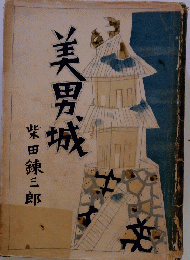 美男城
柴田錬三郎